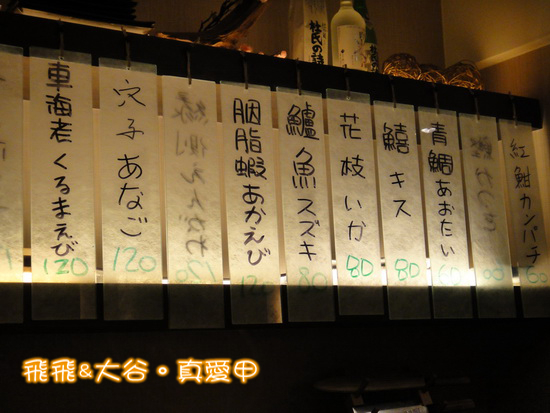 杜氏の詩
車海老くるまえび
120
穴子あなご
120
胭脂蝦あかえび
120
鱸魚スズキ
80
花枝いか
80
鱚キス
80
青鯛あおたい
60
紅魽カンパチ
60
飛飛&大谷。真愛甲